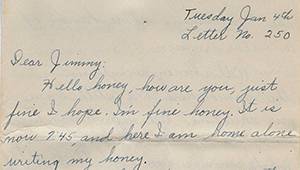 Tuesday Jan 4th
Letter No. 250
Dear Jimmy:
Hello honey, how are you, just
fine I hope. I'm fine honey. It is
now 7:45, and here I am home alone
writing my honey.